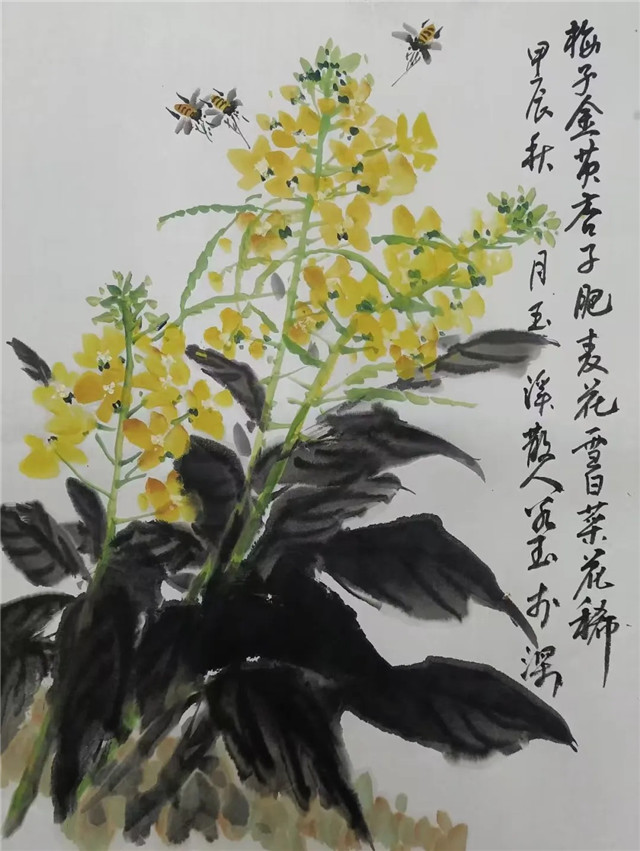 梅子金黄杏子肥麦花雪白菜花稀
甲辰秋月玉溪散人玉於深